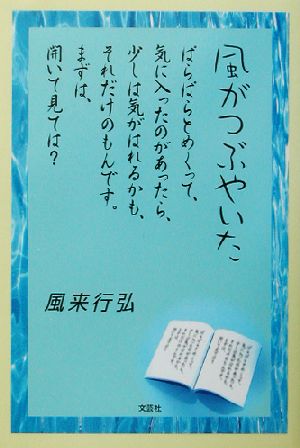 風がつぶやいた
ぱらぱらとめくって、
気に入ったのがあったら、
少しは気がはれるかも、
それだけのもんです。
まずは、
開いて見ては?
風来行弘
文芸社